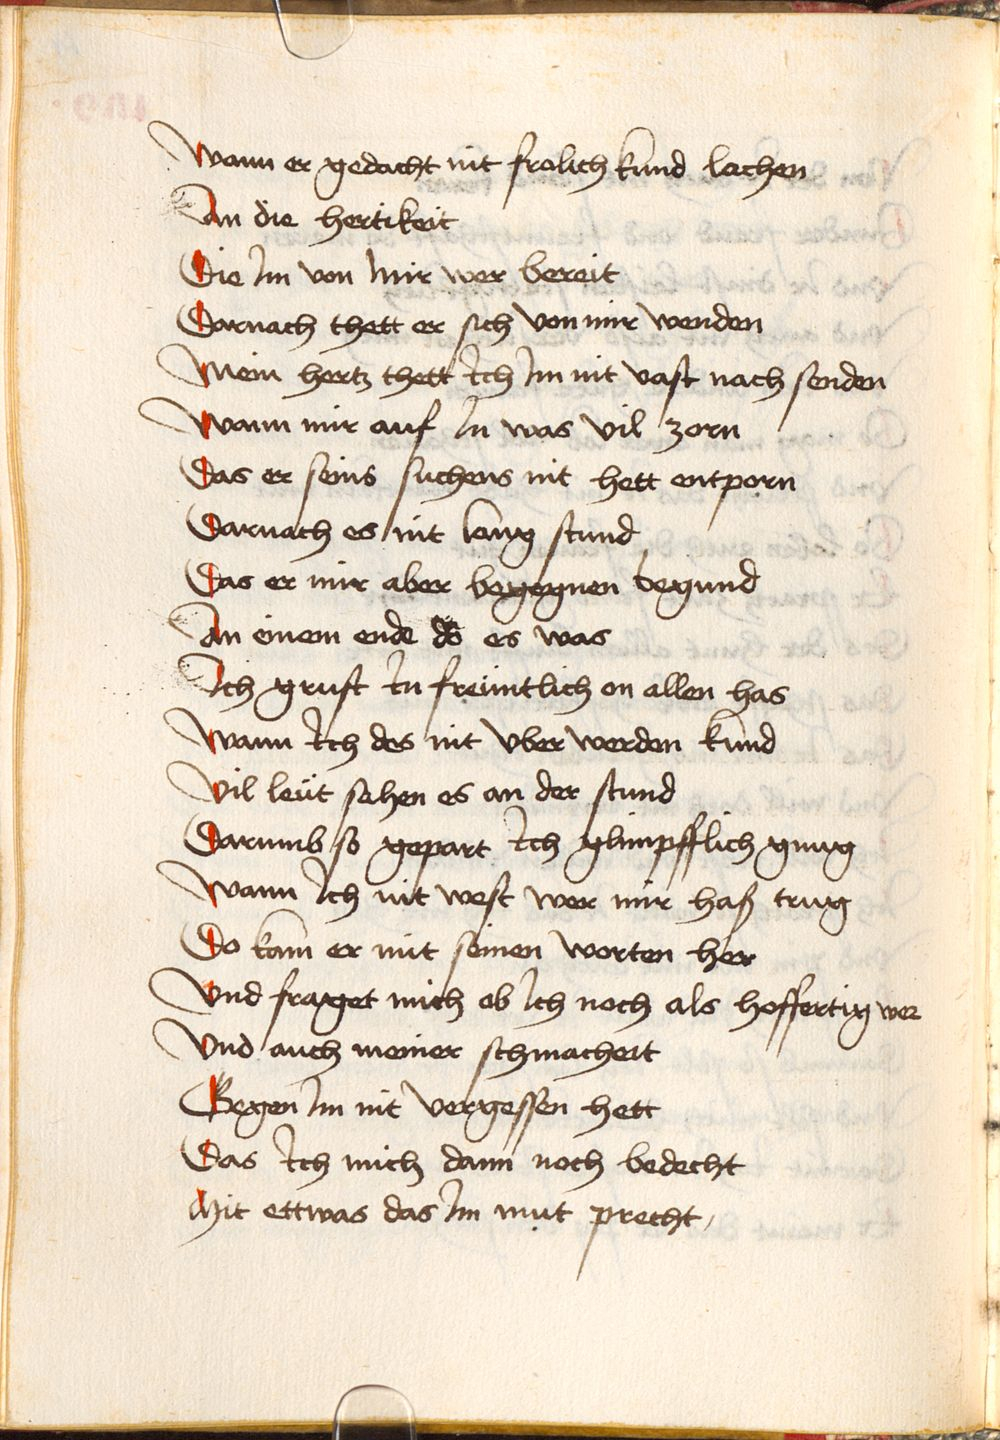 Wann er gedacht nit frolich kund lachen
An die hertikeit
Die Im von mir wer bereit
Darnach thett er sich von mir wenden
Mein hertz thett Ich Im nit vast nach senden
Wann mir auf In was vil zorn
Das er seins suchens nit hett entporn
Darnach es nit lang stund
Das er mir aber begegnen begund
An einem ende do es was
Ich grust In freuntlich on allen has
Wann Ich des nit vber werden kund
Vil leüt sahen es an der stund
Darumb so gepart Ich glimpfflich gnug
Wann Ich nit west wer mir haß trug
Do kam er mit seinen worten her
Vnd fraget mich ob Ich noch als hoffertig wer
Vnd auch meiner schmacheit
Gegen Im nit vergessen hett
Das Ich mich dann noch bedecht
Mit ettwas das Im mut precht